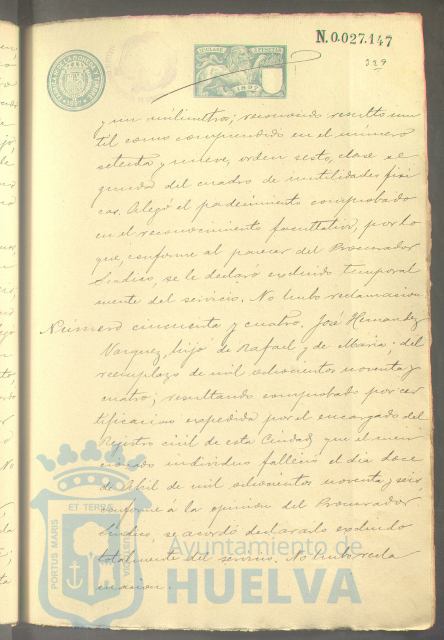 N.0.027.147
329
1897
y un milimetros; reconocido resultó inu
til como comprendido en el número
setenta y nueve, orden sesto, clase se
gunda del cuadro de inutilidades fisi
cas. Alegó el padecimiento comprobado
en el reconocimiento facultativo, por lo
que, conforme al parecer del Procurador
Sindico, se le declaró excluido temporal
mente del servicio. No hubo reclamacion.
Número cincuenta y cuatro. José Hernandez
Vazquez, hijo de Rafael y de Maria; del
reemplazo de mil ochocientos noventa y
cuatro; resultando comprobado por cer
tificacion expedida por el encargado del
Registro civil de esta Ciudad, que el men
cionado individuo falleció el dia doce
de Abril de mil ochocientos noventa y seis
conforme á la opinion del Procurador
Sindico, se acordó declararlo excluido
totalmente del servicio. No hubo recla
macion.
PORTUS MARIS ET TERRAE
Ayuntamiento de
HUELVA